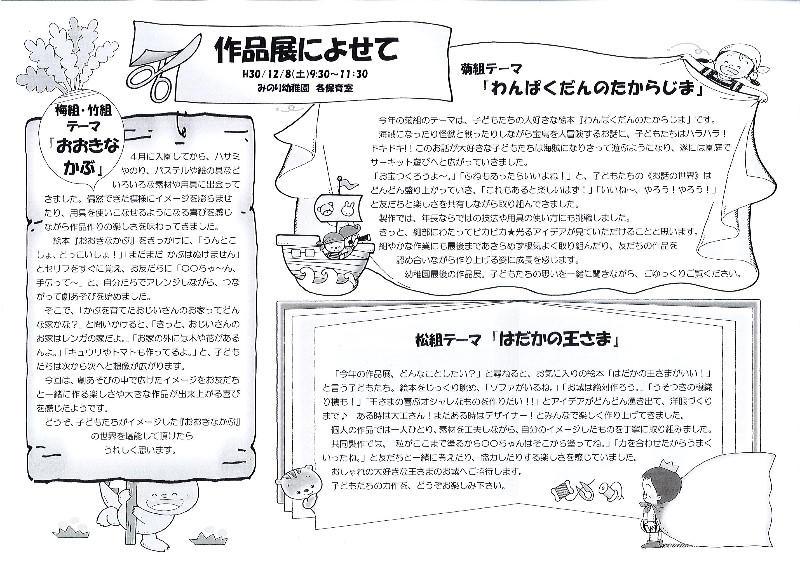 作品展によせて
H30/12/8(土)9:30～11:30
みのり幼稚園　各保育室
梅組・竹組
テーマ
「おおきな
かぶ」
4月に入園してから、ハサミ
やのり、パステルや絵の具など
いろいろな素材や用具に出会って
きました。偶然できた模様にイメージを膨らませ
たり、用具を使いこなせるようになる喜びを感じ
ながら作品作りの楽しさを味わってきました。
絵本『おおきなかぶ』をきっかけに、「うんとこ
しょ、どっこいしょ！」「まだまだ かぶはぬけません」
とセリフをすぐに覚え、お友だちに「〇〇ちゃ～ん、
手伝って～」と、自分たちでアレンジしながら、つな
がって劇あそびを始めました。
そこで、「かぶを育てたおじいさんのお家ってどん
な家かな？」と問いかけると、「きっと、おじいさんの
お家はレンガの家だよ。」「お家の外には木や花がある
んよ。」「キュウリやトマトも作ってるよ。」と、子ども
たちは次から次へと想像が広がります。
今回は、劇あそびの中で広げたイメージをお友だち
と一緒に作る楽しさや大きな作品が出来上がる喜び
を感じたようです。
どうぞ、子どもたちがイメージした『おおきなかぶ』
の世界を堪能して頂けたら
うれしく思います。
菊組テーマ
「わんぱくだんのたからじま」
今年の菊組のテーマは、子どもたちの大好きな絵本『わんぱくだんのたからじま』です。
海賊になったり怪獣と戦ったりしながら宝島を大冒険するお話に、子どもたちはハラハラ！
ドキドキ！このお話が大好きな子どもたちは海賊になりきって遊ぶようになり、遂には園庭で
サーキット遊びへと広がっていきました。
「お宝つくろうよ～。」「ふねもあったらいいよね！」と、子どもたちの《お話の世界》は
どんどん盛り上がっていき、「これもあると楽しいはず！」「いいね～、やろう！やろう！」
と友だちと楽しさを共有しながら取り組んできました。
製作では、年長ならではの技法や用具の使い方にも挑戦しました。
きっと、細部にわたってピカピカ★光るアイデアが見ていただけることと思います。
細やかな作業にも最後まであきらめず根気よく取り組んだり、友だちの作品を
認め合いながら作り上げる姿に成長を感じます。
幼稚園最後の作品展、子どもたちの思いを一緒に聞きながら、ごゆっくりご覧ください。
松組テーマ 「はだかの王さま」
「今年の作品展、どんなことしたい？」と尋ねると、お気に入りの絵本「はだかの王さまがいい！」
と言う子どもたち。絵本をじっくり眺め、「ソファがいるね。」「お城は絶対作ろう。」「うそつきの機織
り機も！」「王さまの喜ぶオシャレなものを作りたい！！」とアイデアがどんどん湧き出て、洋服づくり
まで♪　ある時は大工さん！またある時はデザイナー！とみんなで楽しく作り上げてきました。
個人の作品では一人ひとり、素材を工夫しながら、自分のイメージしたものを丁寧に取り組みました。
共同製作では、「私がここまで塗るから〇〇ちゃんはそこから塗ってね。」「力を合わせたからうまく
いったね。」と友だちと一緒に考えたり、協力したりする楽しさを感じていました。
おしゃれの大好きな王さまのお城へご招待します。
子どもたちの力作を、どうぞお楽しみ下さい。